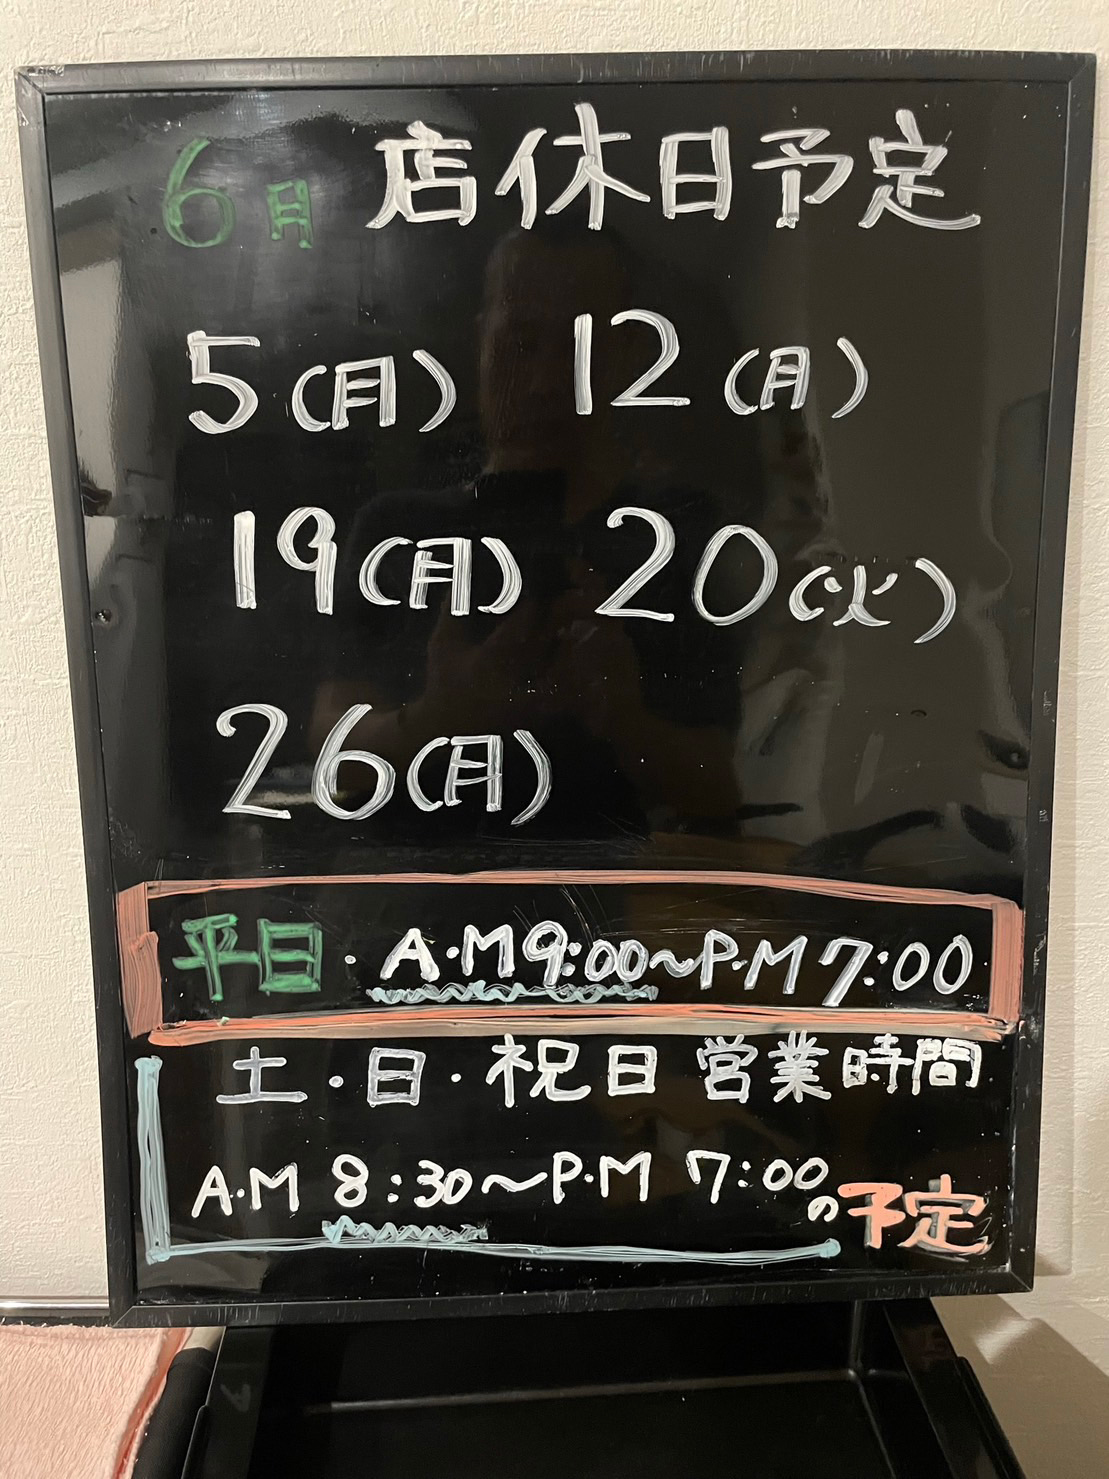 6月 店休日予定
5(月) 12(月)
19(月) 20(火)
26(月)
平日・A・M9:00〜P・M7:00
土・日・祝日 営業時間
A・M 8:30〜P・M 7:00の予定